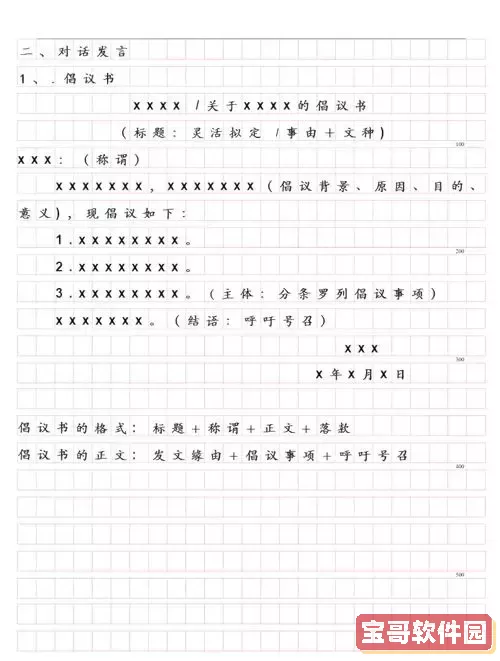 二、对话发言
1、.倡议书
xxxx/关于xxxx的倡议书
(标题:灵活拟定/事由+文种)
100
xxx:(称谓)
xxxxxxx,xxxxxxx(倡议背景、原因、目的、
意义),现倡议如下:
1.xxxxxxxx。
200
2.xxxxxxxx。
3.xxxxxxxx。(主体:分条罗列倡议事项)
xxxxxxx。(结语:呼吁号召)
xxx
300
x年x月x日
倡议书的格式:标题+称谓+正文+落款
倡议书的正文:发文缘由+倡议事项+呼吁号召
400
500
宝哥软件园